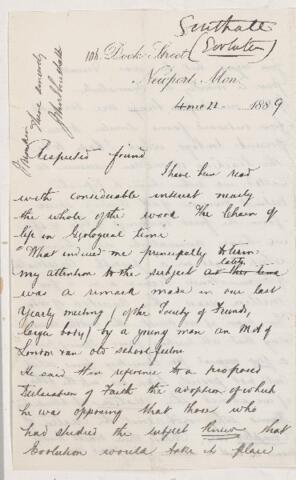 Southall
(Evolution)
10h. Dock Street
Newport, Mon.
4 mo 22 1889
Respected friend
I have been read
with considerable interest nearly
the whole of the work The Chain of
life in Geological time
"What induced me principally to turn
my attention to the subject lately
at this time
was a remark made in our last
Yearly meeting (of the Society of Friends,
larger body) by a young man an M A of
London & an old school fellow.
He said in reference to a proposed
Declaration of Faith the adoption of which
he was opposing that those who
had studied the subject knew that
Evolution would take its place
I remain
Thine sincerely
John Southall